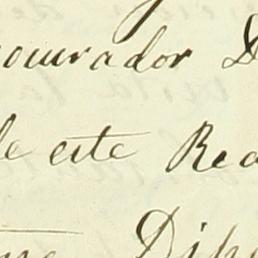 ocurador D
de este Rea
Dipu